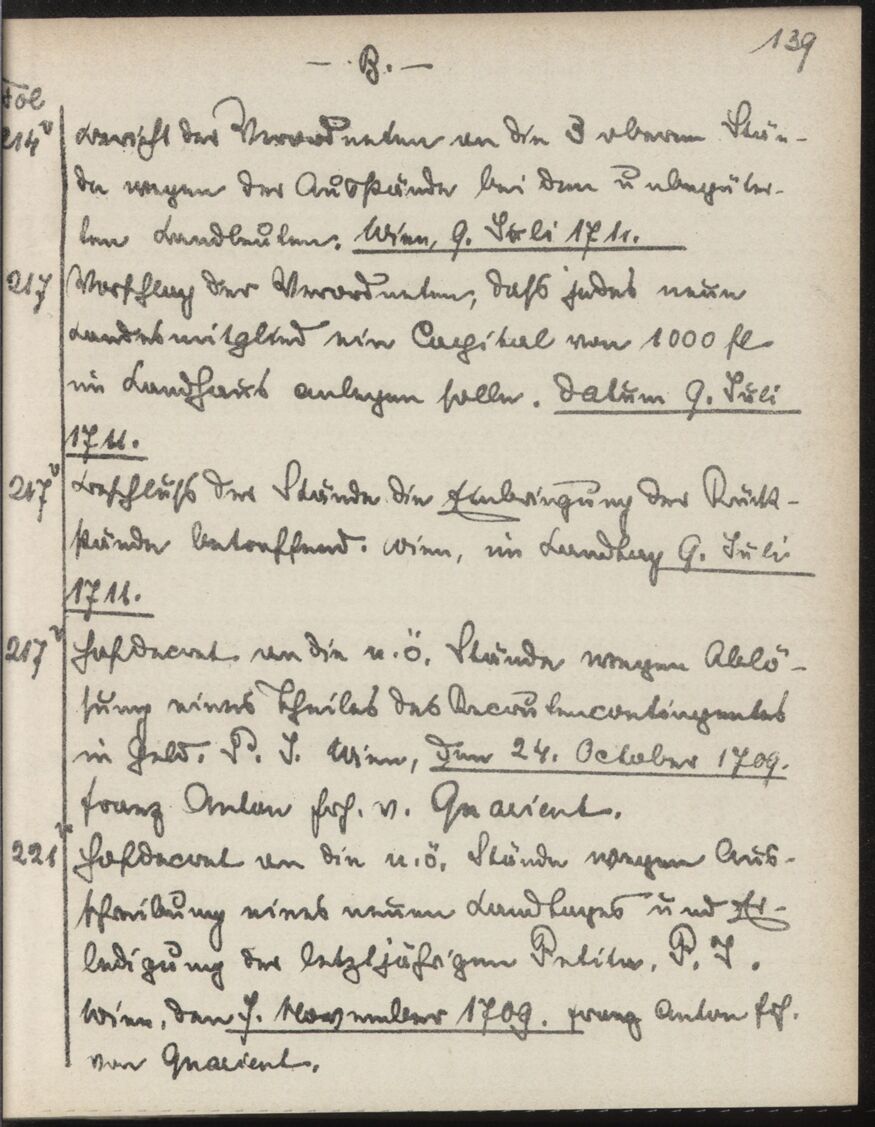 139
— B. —
Fol
214v Bericht der Verordneten an die 3 oberen Stän-
de wegen der Ausstände bei den unbegüter-
ten Landleuten. Wien, 9. Juli 1711.
217 Vorschlag der Verordneten, daß jedes neue
Landesmitglied ein Capital von 1000 fl
im Landhaus anlegen solle. Datum 9. Juli
1711.
217v Beschluß der Stände die Einbringung der Rück-
stände betreffend. Wien, im Landtag 9. Juli
1711.
217v Hofdecret an die n.ö. Stände wegen Ablö-
sung eines Theiles des Recrutencontingentes
in Geld. P. I. Wien, den 24. October 1709.
Franz Anton Frh. v. Quarient.
221v Hofdecret an die n.ö. Stände wegen Aus-
schreibung eines neuen Landtages und Er-
ledigung der letztjährigen Petita. P. I.
Wien, den 7. November 1709. Franz Anton Frh.
von Quarient.